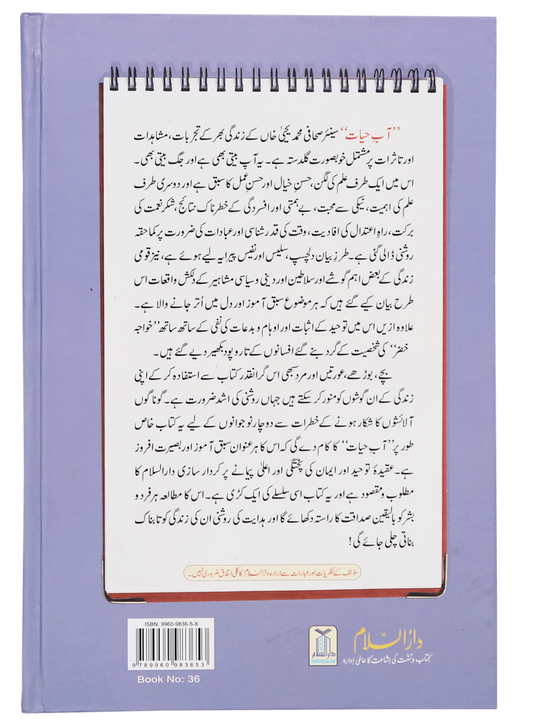 ”آب حیات“ سینئر صحافی محمد یحییٰ خاں کے زندگی بھر کے تجربات، مشاہدات
اور تاثرات پر مشتمل خوبصورت گلدستہ ہے۔ یہ آپ بیتی بھی ہے اور جگ بیتی بھی۔
اس میں ایک طرف علم کی لگن، حسنِ خیال اور حسنِ عمل کا سبق ہے اور دوسری طرف
علم کی اہمیت، نیکی سے محبت، بے ہمتی اور افسردگی کے خطرناک نتائج، شکر نعمت کی
برکت، راہِ اعتدال کی افادیت، وقت کی قدر شناسی اور عبادات کی ضرورت پر کما حقہ
روشنی ڈالی گئی ہے۔ طرزِ بیان دلچسپ، سلیس اور نفیس پیرایہ لیے ہوئے ہے، نیز قومی
زندگی کے بعض اہم گوشے اور سلاطین اور دینی و سیاسی مشاہیر کے دلکش واقعات اس
طرح بیان کیے گئے ہیں کہ ہر موضوع سبق آموز اور دل میں اُتر جانے والا ہے۔
علاوہ ازیں اس میں توحید کے اثبات اور اوہام و بدعات کی نفی کے ساتھ ساتھ ”خواجہ
خضر“ کی شخصیت کے گرد بنے گئے افسانوں کے تار و پود بکھیر دیے گئے ہیں۔
بچے، بوڑھے، عورتیں اور مرد سبھی اس گرانقدر کتاب سے استفادہ کر کے اپنی
زندگی کے ان گوشوں کو منور کر سکتے ہیں جہاں روشنی کی اشد ضرورت ہے۔ گوناگوں
آلائشوں کا شکار ہونے کے خطرات سے دوچار نوجوانوں کے لیے یہ کتاب خاص
طور پر ”آب حیات“ کا کام دے گی کہ اس کا ہر عنوان سبق آموز اور بصیرت افروز
ہے۔ عقیدۂ توحید اور ایمان کی پختگی اور اعلیٰ پیمانے پر کردار سازی دارالسلام کا
مطلوب و مقصود ہے اور یہ کتاب اسی سلسلے کی ایک کڑی ہے۔ اس کا مطالعہ ہر فرد و
بشر کو بالیقین صداقت کا راستہ دکھائے گا اور ہدایت کی روشنی ان کی زندگی کو تابناک
بناتی چلی جائے گی!
مؤلف کے نظریات اور عبارات سے ادارہ دارالسلام کا کلی اتفاق ضروری نہیں۔
ISBN: 9960-9836-5-X
9 789960 983653
Book No: 36
دارالسلام
کتاب و سنت کی اشاعت کا عالمی ادارہ
دارالسلام